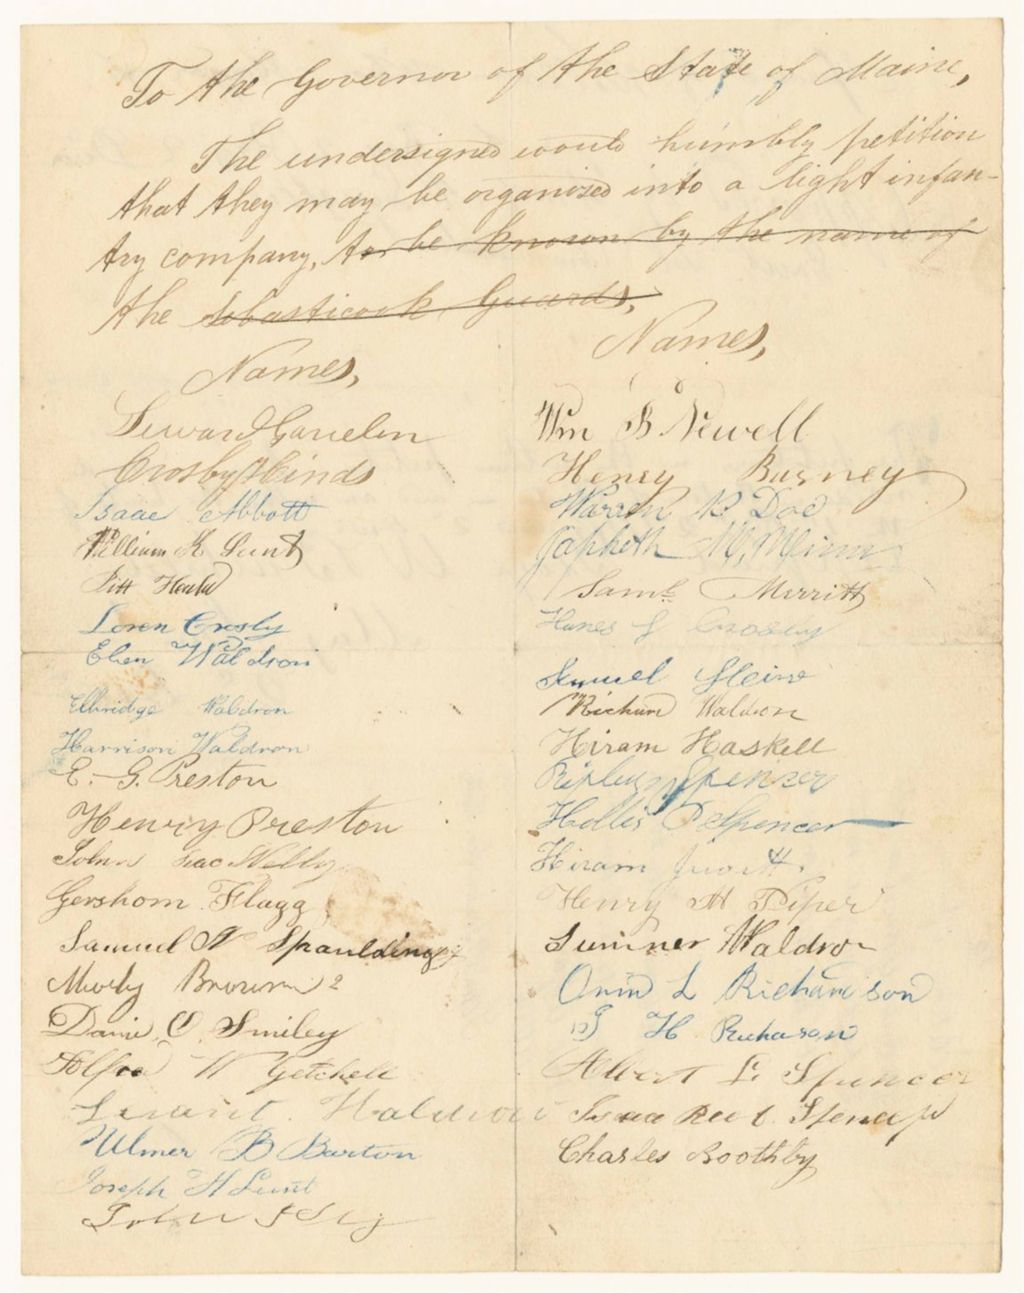 To the Governor of the State of Maine,
The undersigned would humbly petition
that they may be organized into a light infan-
try company, to be known by the name of
the Sebasticook Guards,
Names,
Crosby Hinds
Isaac Abbott
William K Lunt
Pitt Heald
Loren Crosby
Eben Waldron
Elbridge Waldron
Harrison Waldron
E. G. Preston
Henry Preston
John
Gershom Flagg
Samuel N Spaulding
Brown 2
O. Smiley
W Getchell
Waldron
Ulmer B Barton
Joseph H Lunt
John
Names,
Wm B Newell
Henry Burney
Warren B Doe
Japheth M.
Saml. Merritt
Crosby
Samuel
Richard Waldron
Hiram Haskell
Ripley Spencer
Hollis P Spencer
Hiram
Henry H Piper
Sumner Waldron
Orrin L Richardson
H. Richardson
Albert L Spencer
Isaac
Charles Boothby